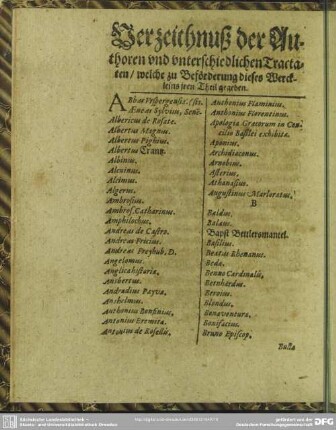 Verzeichnuß der Au-
thoren vnd vnterschiedlichen Tracta-
ten / welche zu Beförderung dieses Werck-
leins jren Theil gegeben.
ABbas Vrspergensis.
Æneas Sylvius, Sene.
Albericus de Rosate.
Albertus Magnus.
Albertus Pighius.
Albertus Crantz.
Albinus.
Alcuinus.
Alcimus.
Algerus.
Ambrosius.
Ambros. Catharinus.
Amphilochius.
Andreas de Castro.
Andreas Fricius.
Andreas Freyhub. D.
Angelomus.
Anglica historia.
Ansbertus.
Andradius Payva.
Anshelmus.
Anthonius Bonfinius.
Antonius Eremita.
Antonius de Rosellis.
Anthonius Flaminius.
Anthonius Florentinus.
Apologia Græcorum in Con-
cilio Basileæ exhibita.
Aponius.
Archidiaconus.
Arnobius.
Asterius.
Athanasius.
Augustinus Marloratus.
B
Baldus.
Balæus.
Bapst Bettlersmantel.
Basilius.
Beatus Rhenanus.
Beda.
Benno Cardinalis.
Bernhardus.
Blondus.
Bonaventura.
Bonifacius.
Bruno Episcop.
Bulla
Sächsische Landesbibliothek -
Staats- und Universitätsbibliothek Dresden
gefördert von der
Deutschen Forschungsgemeinschaft
DFG